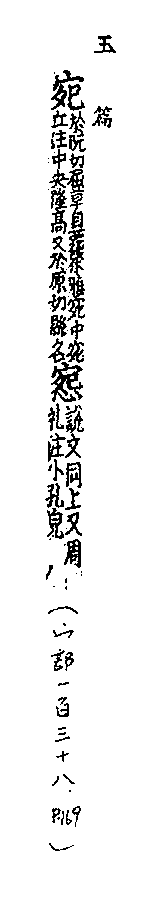 玉篇
宛
於阮切屈草自覆也尔雅宛中宛
丘注中央隆高又於原切縣名
惌
說文同上又周
礼注小孔皃
(宀部一百三十八. P.169)